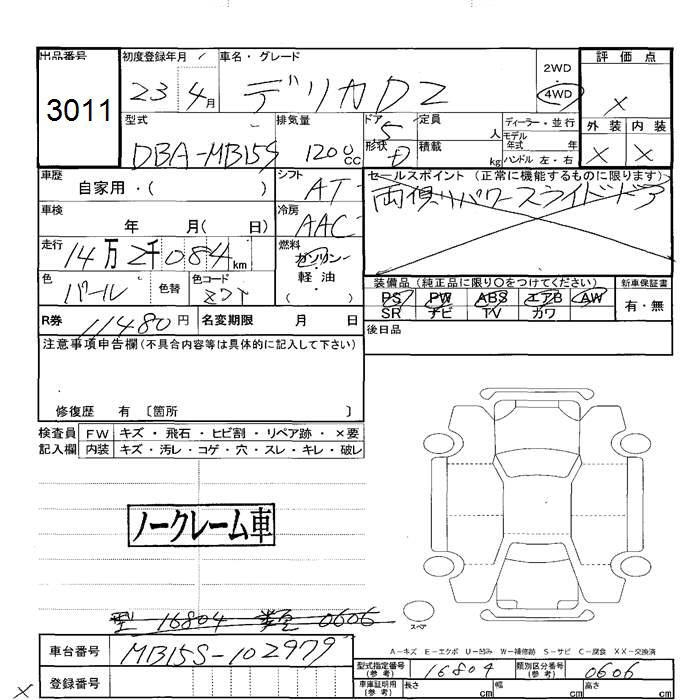 出品番号 初度登録年月 車名・グレード 2WD 評価点
3011 23 4月 デリカD2 4WD ×
型式 排気量 ドア 5 定員 人 ディーラー・並行 外装 内装
DBA-MB15S 1200cc 形状 D 積載 kg モデル年式 年 × ×
ハンドル 左・右
車歴 自家用・( ) シフト AT セールスポイント (正常に機能するものに限ります)
車検 年 月( 日) 冷房 AAC 両側パワースライドドア
走行 14万2千084km 燃料 ガソリン・軽油
( )
色 パール 色替 色コード 装備品 (純正品に限り○をつけてください) 新車保証書
PS PW ABS エアB AW 有・無
SR ナビ TV カワ
R券 11480円 名変期限 月 日 後日品
注意事項申告欄(不具合内容等は具体的に記入して下さい)
修復歴 有 〔箇所 〕
検査員 FW キズ・飛石・ヒビ割・リペア跡・×要
記入欄 内装 キズ・汚レ・コゲ・穴・スレ・キレ・破レ
ノークレーム車
型 16804 類区 0606
スペア
A-キズ E-エクボ U-凹み W-補修跡 S-サビ C-腐食 XX-交換済
車台番号 MB15S-102979
型式指定番号(参考) 16804 類別区分番号(参考) 0606
登録番号 車庫証明用(参考) 長さ cm 幅 cm 高さ cm
×